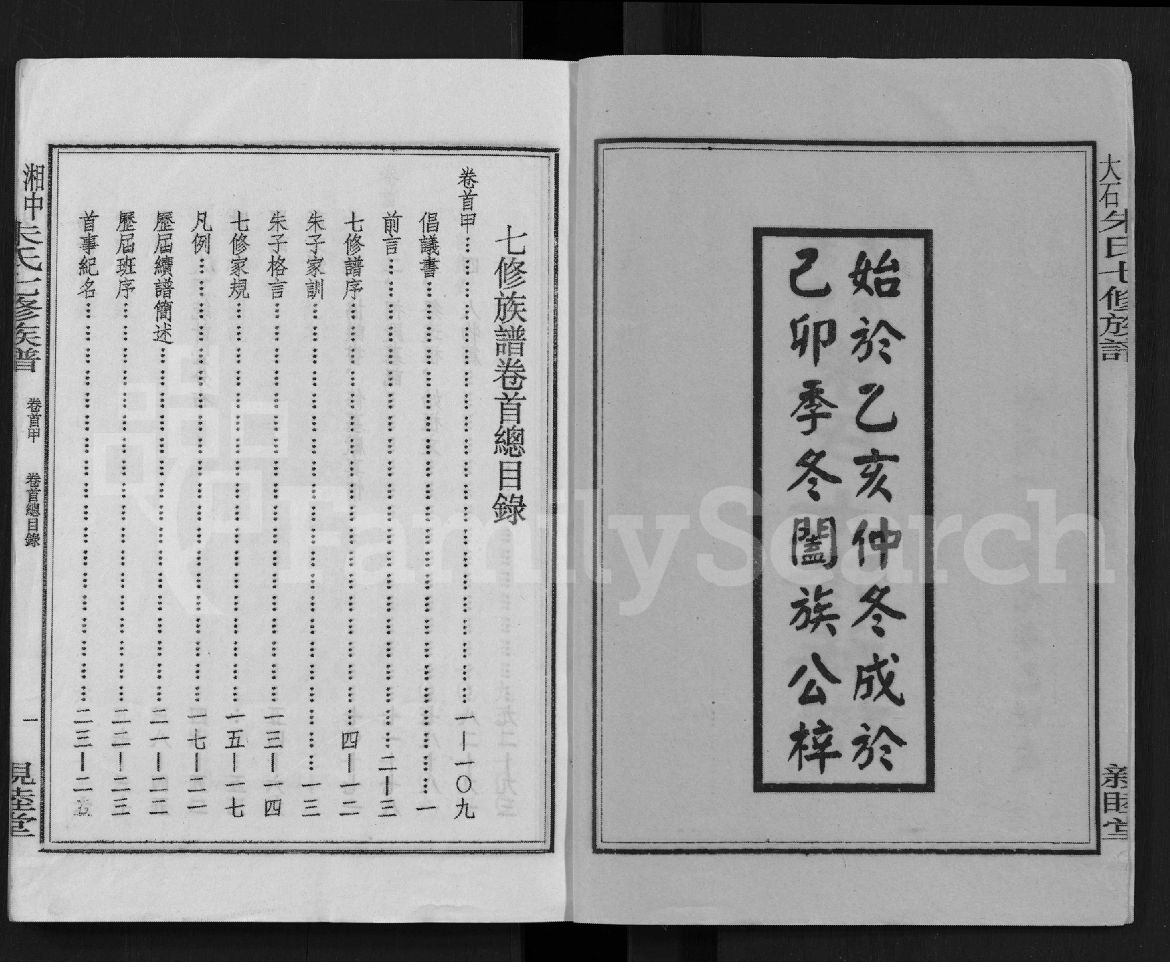 始於乙亥仲冬成於
己卯季冬闔族公梓
七修族譜卷首總目錄
卷首甲……一—一〇九
倡議書……一
前言……二—三
七修譜序……四—一二
朱子家訓……一三
朱子格言……一三—一四
七修家規……一五—一七
凡例……一七—二一
歷屆續譜簡述……二一—二二
歷屆班序……二二—二三
首事紀名……二三—二
湘中朱氏七修族譜
卷首甲
卷首總目錄
一
FamilySearch